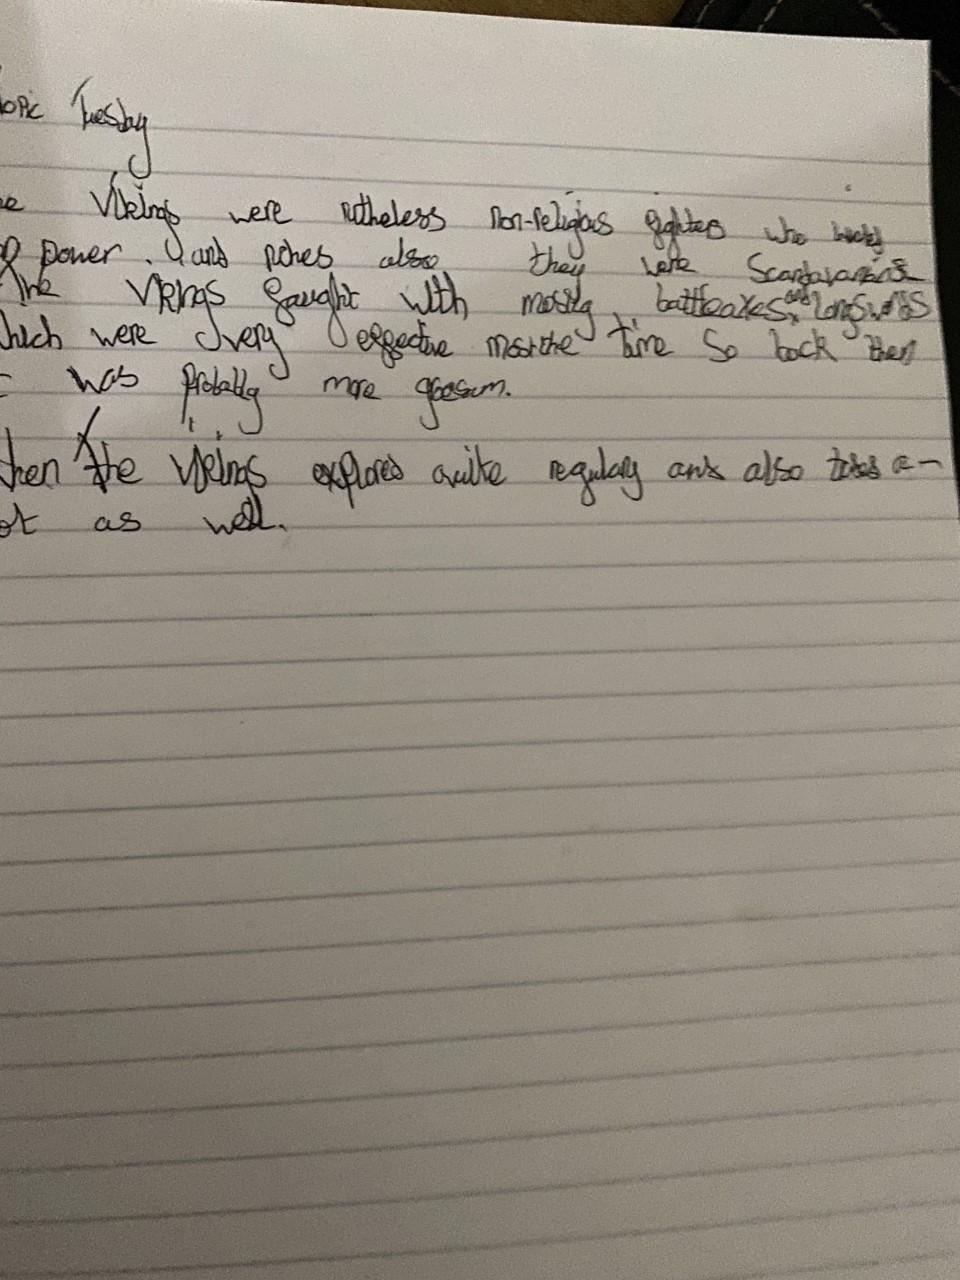 opic Tuesday
e Vikings were rutheless non-religious fighters who
power. and riches also they were
The Vikings fought with mostly battleaxes and longswords
hich were very effective most the time so back then
was probably more goesum.
hen the Vikings explored quite regulary and also a-
ot as well.